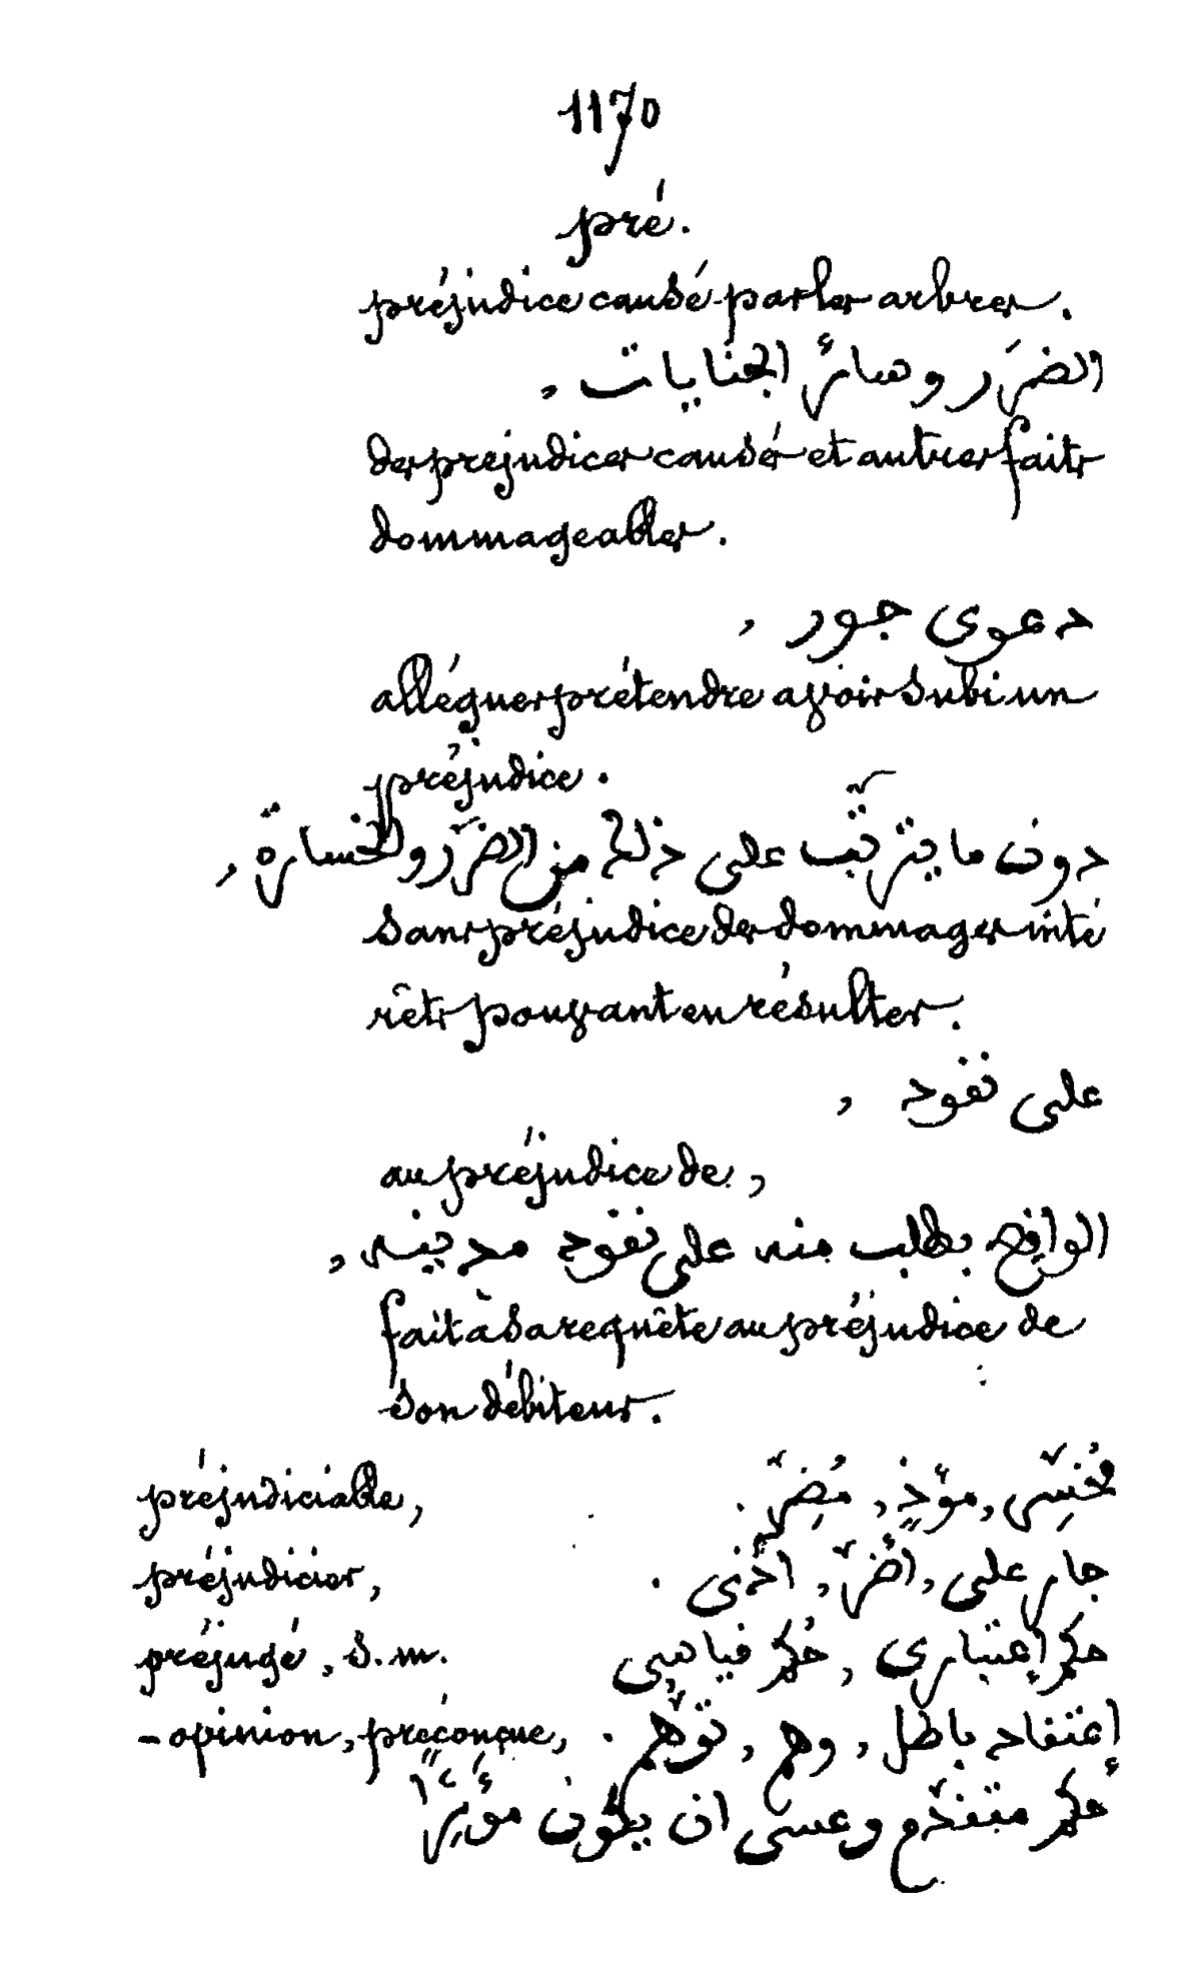 1170
pré.
préjudice causé par les arbres.
الضرَر وسائرُ الجنايات ,
des préjudices causés et autres faits
dommageables.
دعوى جور ,
alléguer prétendre avoir subi un
préjudice.
دون ما يترتّب على ذلك من الضرَر والخسارة ,
sans préjudice des dommages inté
rêts pouvant en résulter.
على نقود ,
au préjudice de,
الواقع بطلب منه على نقود مدينه ,
fait à sa requête au préjudice de
son débiteur.
préjudiciable, مُخسِّر, مؤذٍ, مُضِرّ.
préjudicier, جار على, أضَرّ, أذى.
préjugé, s.m. حكم إعتباري, حُكم قياسي
- opinion, préconçue, إعتقاد باطل, وهم, توَهّم.
حُكم متقدّم وعسى ان يكون مؤثِرًا